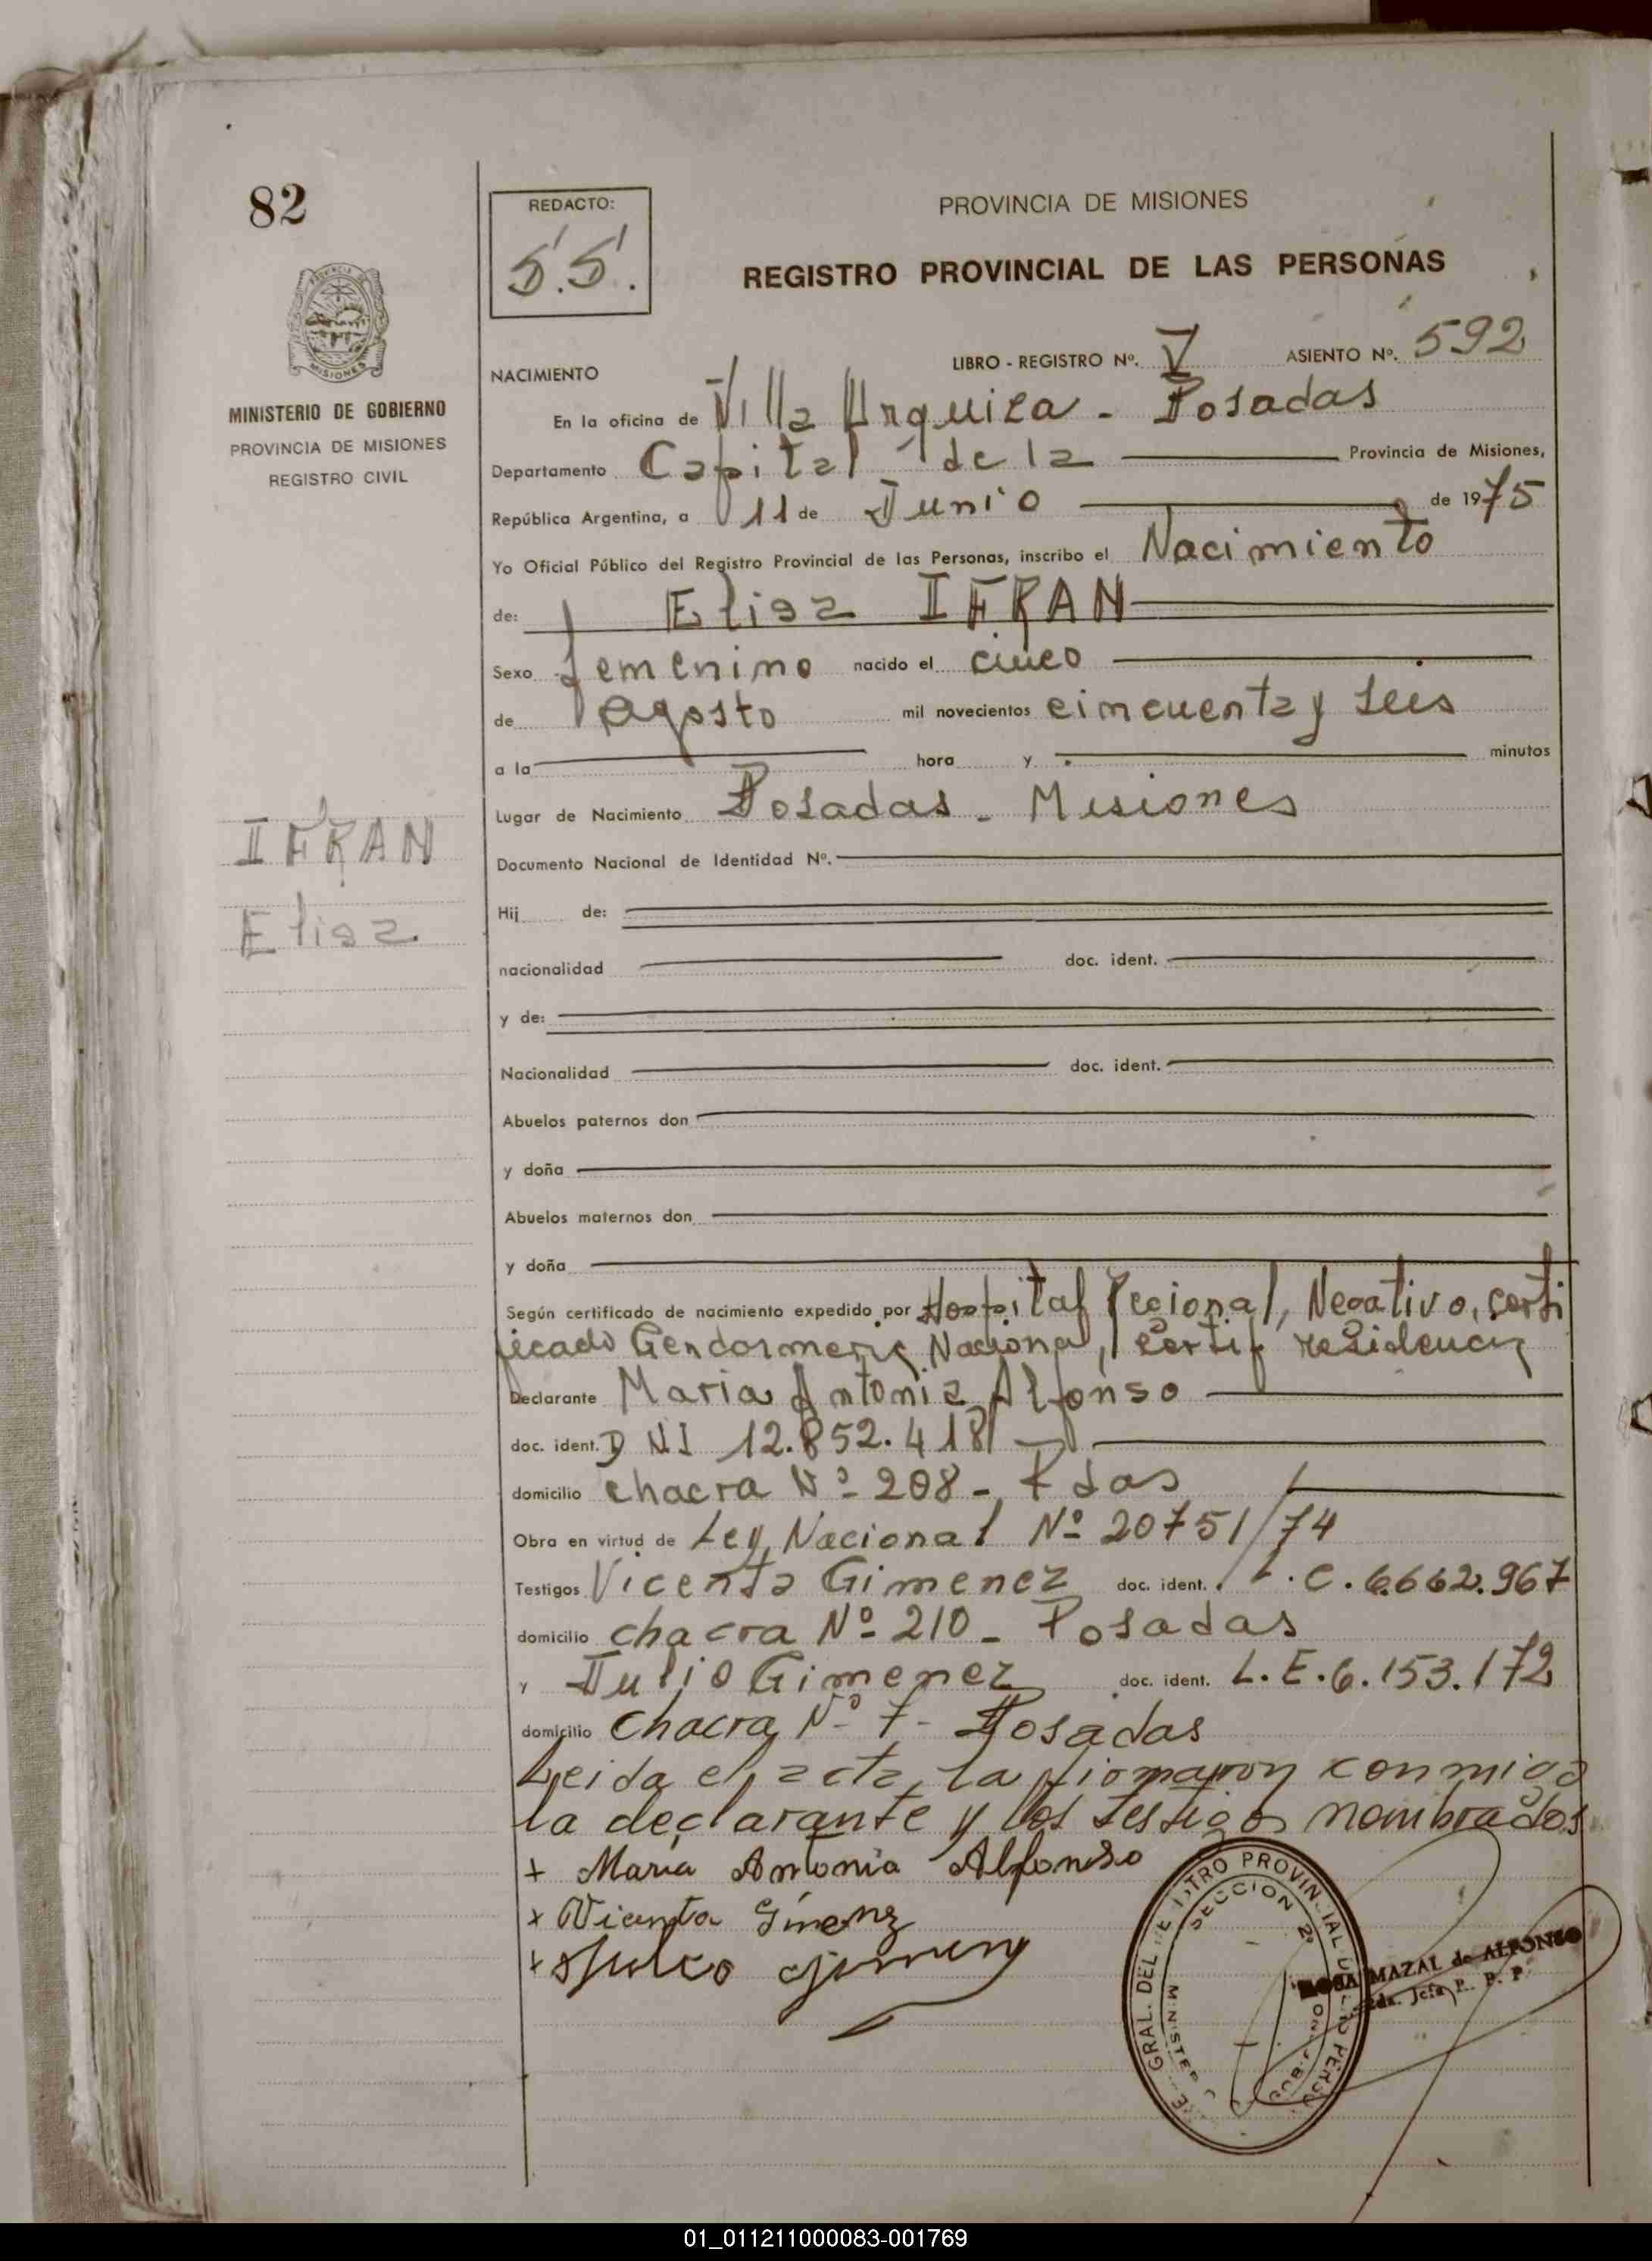 82
REDACTO:
S.S.
PROVINCIA DE MISIONES
REGISTRO PROVINCIAL DE LAS PERSONAS
MISIONES
MINISTERIO DE GOBIERNO
PROVINCIA DE MISIONES
REGISTRO CIVIL
NACIMIENTO LIBRO - REGISTRO Nº. V ASIENTO Nº. 592
En la oficina de Villa Urquiza - Posadas
Departamento Capital de la Provincia de Misiones,
República Argentina, a 11 de Junio de 1975
Yo Oficial Público del Registro Provincial de las Personas, inscribo el Nacimiento
de: Elisa IFRAN
Sexo femenino nacido el cinco
de agosto mil novecientos cincuenta y seis
a la hora y minutos
Lugar de Nacimiento Posadas - Misiones
IFRAN
Elisa
Documento Nacional de Identidad Nº.
Hij de:
nacionalidad doc. ident.
y de:
Nacionalidad doc. ident.
Abuelos paternos don
y doña
Abuelos maternos don
y doña
Según certificado de nacimiento expedido por Hospital Regional, Negativo, certi
ficado Gendarmeria Nacional, Certif residencia
Declarante Maria Antonia Alfonso
doc. ident. DNI 12.852.418
domicilio chacra Nº 208 - Pdas
Obra en virtud de Ley Nacional Nº 20751/74
Testigos Vicenta Gimenez doc. ident. L.C. 6.662.967
domicilio chacra Nº 210 - Posadas
y Julio Gimenez doc. ident. L.E. 6.153.172
domicilio chacra Nº 7 - Posadas
Leida el acta, la firmaron conmigo
la declarante y los testigos nombrados
+ Maria Antonia Alfonso
x Vicenta Gimenez
+ Julio Gimenez
GRAL. DEL REGISTRO PROVINCIAL
SECCION 2ª
MAZAL de ALFONSO
01_011211000083-001769